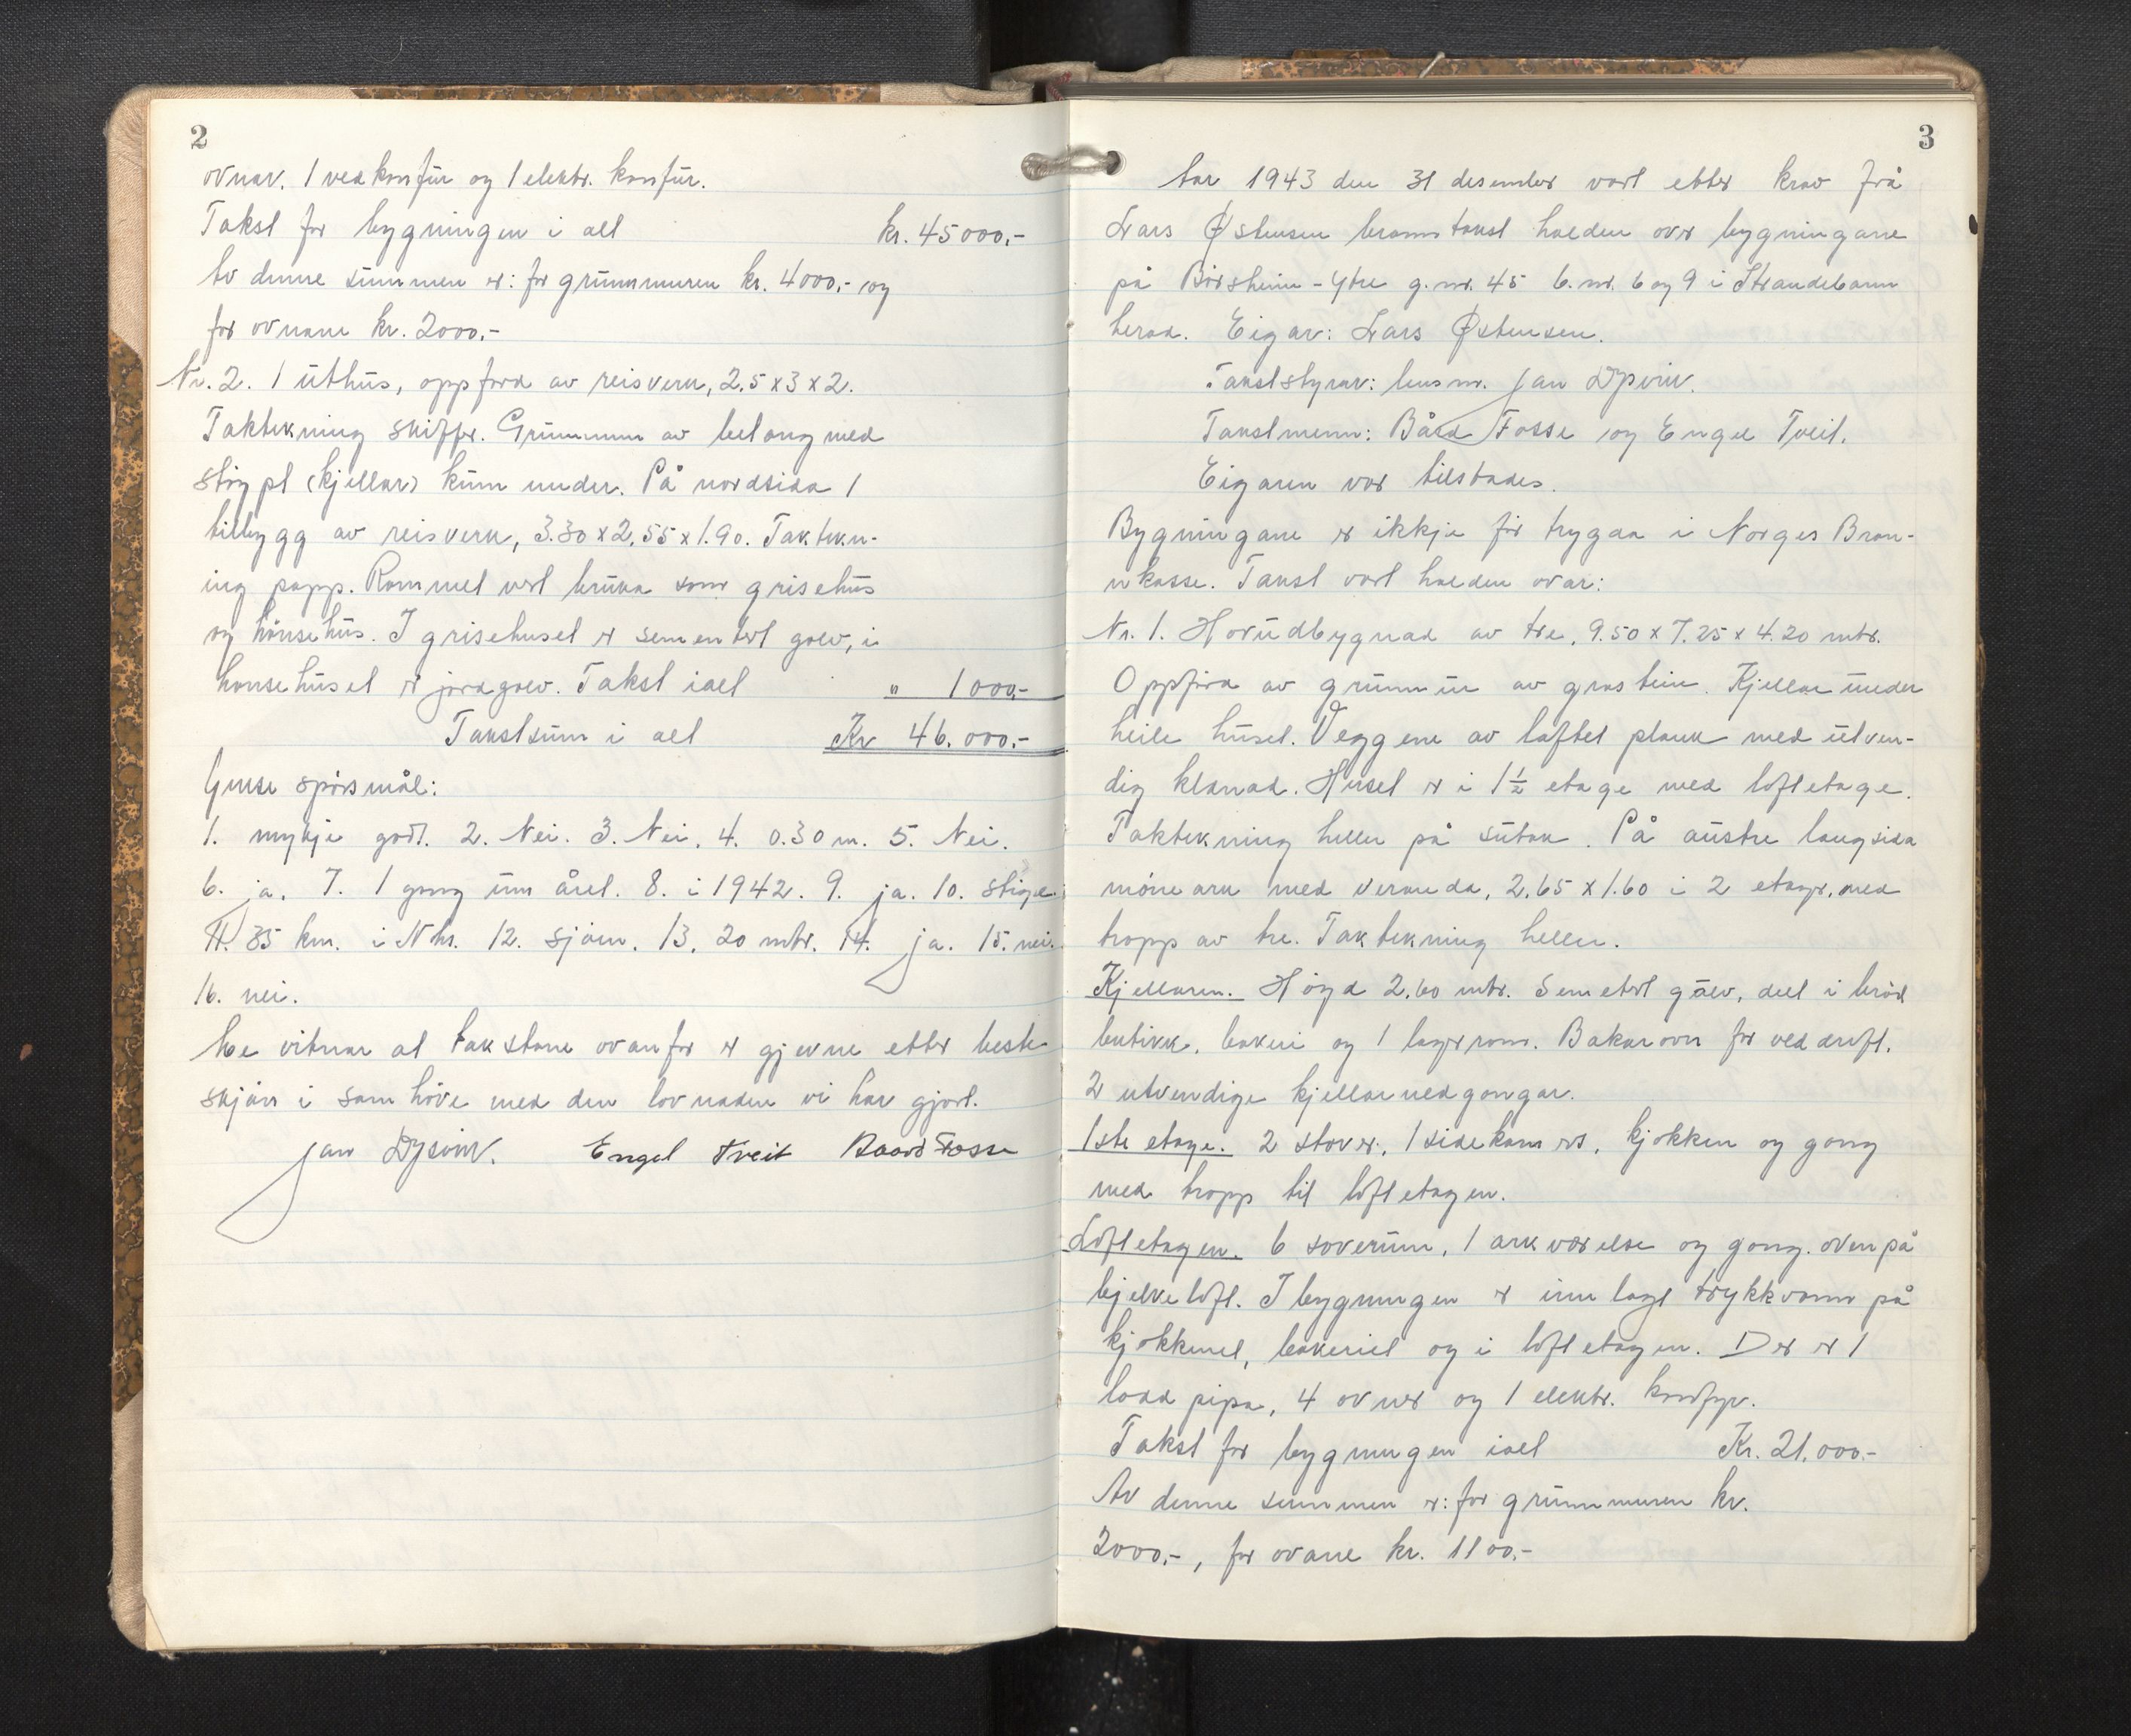 2
ovnar. 1 vedkomfür og 1 elektr. komfür.
Takst for bygningen i alt kr. 45000,-
Av denne summen er: for grünnmuren kr. 4000,- og
for ovnane kr. 2000,-
Nr. 2. 1 üthüs, oppförd av reisverk, 2,5 x 3 x 2.
Taktekning skiffer. Grünnmur av betong med
stöypt (kjellar) küm under. På nordsida 1
tilbygg av reisverk, 3.30 x 2,55 x 1.90. Taktekn-
ing papp. Rommet vert brüka som grisehüs
og hönsehüs. I grisehuset er sementert golv, i
hönsehüset er jordgolv. Takst ialt " 1000,-
Takstsüm i alt Kr 46.000.-
Ymse spörsmål:
1. mykje godt. 2. Nei. 3. Nei. 4. 0.30 m. 5. Nei.
6. ja. 7. 1 gong üm året. 8. i 1942. 9. ja. 10. stige.
11. 35 km. i Nhs. 12. sjöen. 13. 20 mtr. 14. ja. 15. nei.
16. nei.
Me vitnar at takstane ovanfor er gjevne etter beste
skjön i samhöve med den lovnaden vi har gjort.
Jan Dysvik. Engel Tveit Baard Fosse
3
År 1943 den 31 desember vart etter krav frå
Lars Østensen branntakst halden over bygningane
på Börsheim-ytre g.nr. 45 b.nr. 6 og 9 i Strandebarm
herad. Eigar: Lars Østensen.
Takststyrar: lensm. Jan Dysvik.
Takstmenn: Bård Fosse og Engel Tveit.
Eigaren var tilstades.
Bygningane er ikkje för trygda i Norges Bran-
nkasse. Takst vart halden over:
Nr. 1. Hovüdbygnad av tre, 9.50 x 7.25 x 4.20 mtr.
Oppförd av grünnmür av gråstein. Kjellar ünder
heile hüset. Veggene av laftet plank med ütven-
dig klednad. Huset er i 1½ etage med loftetage.
Taktekning heller på sütak. På austre langsida
möneark med veranda, 2,65 x 1.60 i 2 etager, med
tropp av tre. Taktekning heller.
Kjellaren. Högd 2,60 mtr. Semetert gölv, delt i bröd
butikk, bakeri og 1 lagerrom. Bakarovn for veddrift.
2 utvendige kjellarnedgongar.
1ste etage. 2 stover, 1 sidekamers, kjökken og gong
med tropp til loftetagen.
Loftetagen. 6 soverüm, 1 arkværelse og gong. ovenpå
bjelkeloft. I bygningen er innlagt trykkvann på
kjökkenet, bakeriet og i loftetagen. Der er 1
lodd pipa, 4 ovner og 1 elektr. komfyr.
Takst for bygningen ialt Kr. 21.000.-
Av denne summen er: for grünnmuren kr.
2000.-, for ovane kr. 1100.-